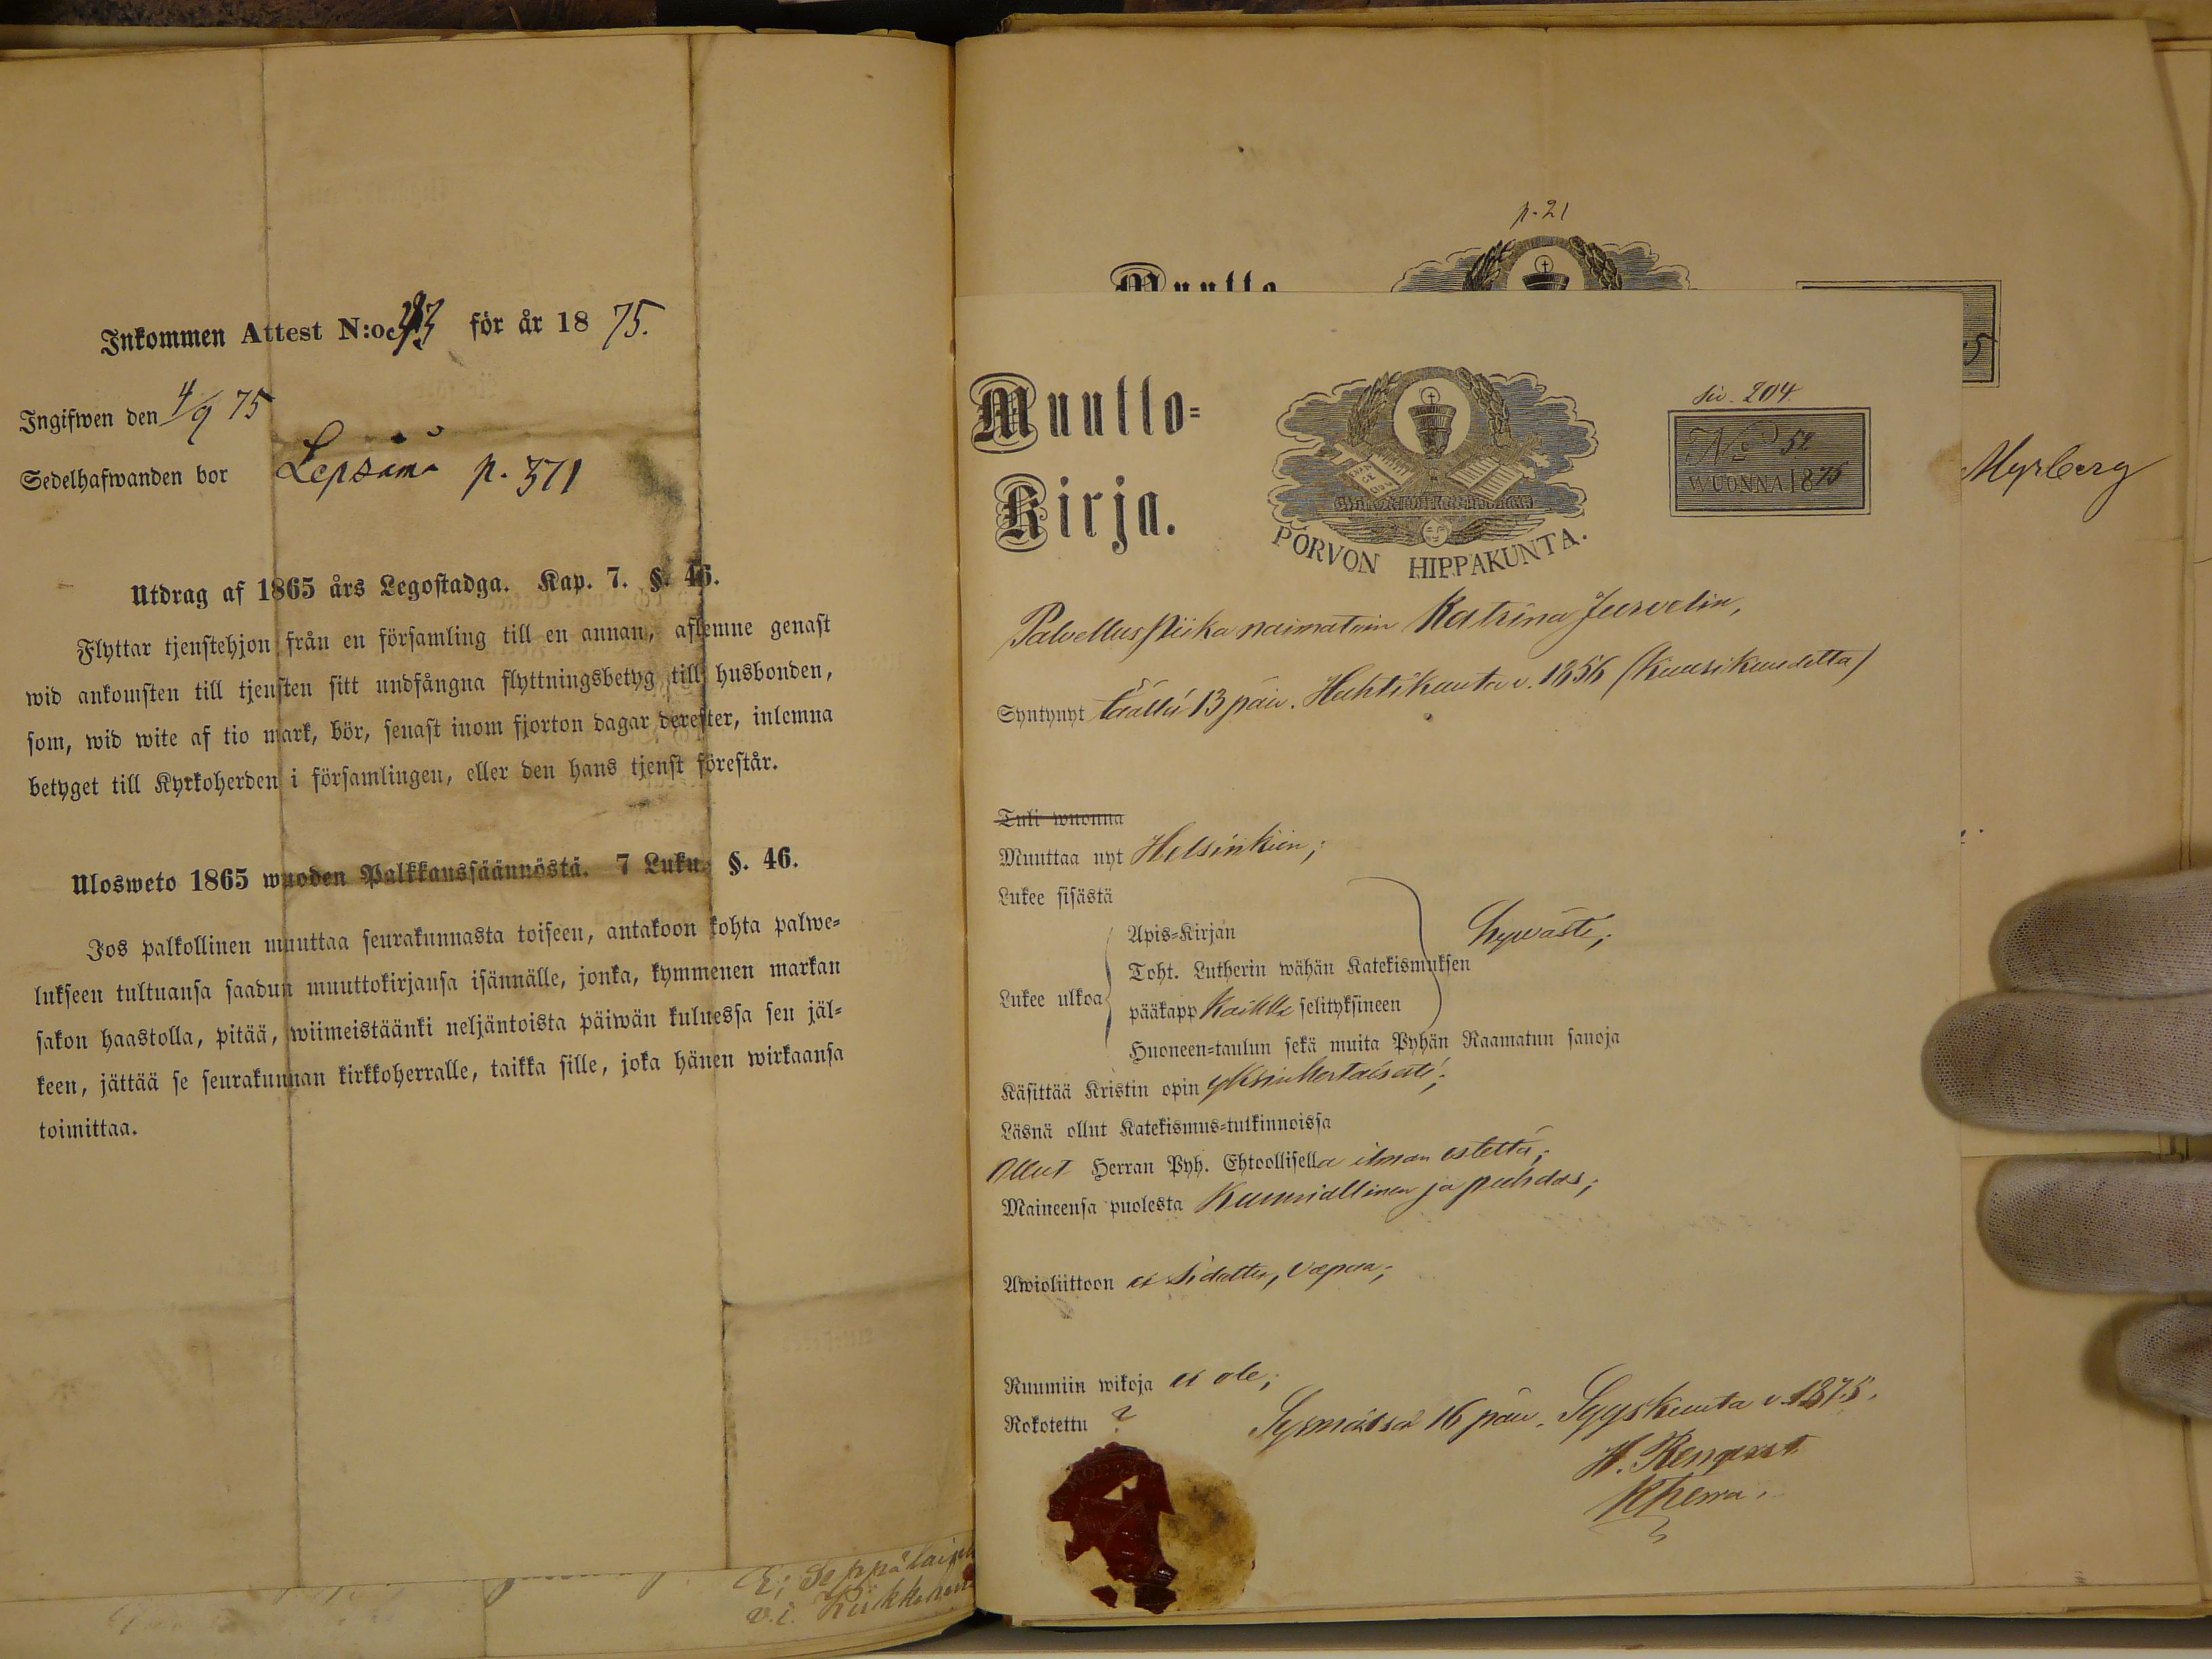 Inkommen Attest N:o 93 för år 1875.
Ingifwen den 4/9 75
Sedelhafwanden bor Lepsämä p. 371
Utdrag af 1865 års Legostadga. Kap. 7. §. 46.
Flyttar tjenstehjon från en församling till en annan, aflemne genast
wid ankomsten till tjensten sitt undfångna flyttningsbetyg till husbonden,
som, wid wite af tio mark, bör, senast inom fjorton dagar derefter, inlemna
betyget till Kyrkoherden i församlingen, eller den hans tjenst förestår.
Ulosweto 1865 wuoden Palkkaussäännöstä. 7 Luku. §. 46.
Jos palkollinen muuttaa seurakunnasta toiseen, antakoon kohta palwe=
lukseen tultuansa saadun muuttokirjansa isännälle, jonka, kymmenen markan
sakon haastolla, pitää, wiimeistäänki neljäntoista päiwän kuluessa sen jäl=
keen, jättää se seurakunnan kirkkoherralle, taikka sille, joka hänen wirkaansa
toimittaa.
E. Seppälai
v.i. Kirkkoherra
p. 21
Muutto
Myrberg
Muutto=
Kirja.
PORVON HIPPAKUNTA.
siv. 204
No 52
WUONNA 1875
Palvelluspiika naimatoin Katrina Jurvelin,
Syntynyt täällä 13 päiv. Huhtikuuta v. 1856 (kuusikuudetta)
Tuli wuonna
Muuttaa nyt Helsinkiin;
Lukee sisästä
Lukee ulkoa
Apis=Kirjan
Toht. Lutherin wähän Katekismuksen
pääkapp Kaikki selityksineen
Hywästi;
Huoneen=taulun sekä muita Pyhän Raamatun sanoja
Käsittää Kristin opin yksinkertaisesti;
Läsnä ollut Katekismus=tutkinnoissa
Ollut Herran Pyh. Ehtoollisella ilman estettä;
Maineensa puolesta Kunniallinen ja puhdas;
Awioliittoon ei sidottu, vapaa;
Ruumiin wikoja ei ole;
Rokotettu ?
Sysmässä 16 päiv. Syyskuuta v. 1875.
H. Renqvist
Kherra.